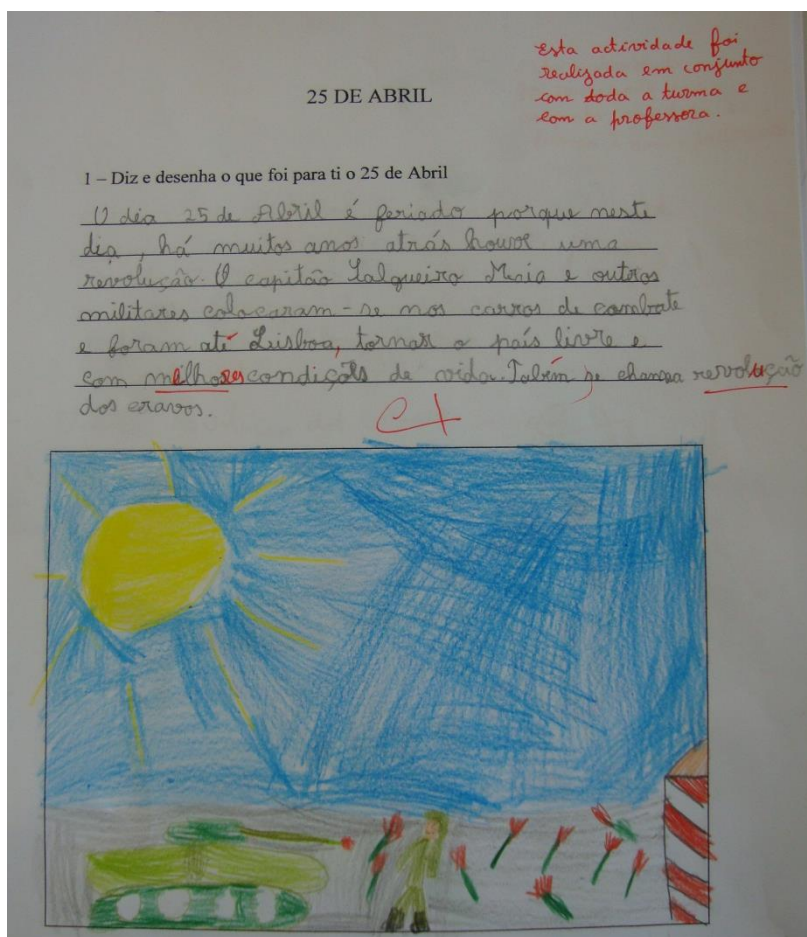 Esta actividade foi
realizada em conjunto
com doda a turma e
com a professora.
25 DE ABRIL
1 – Diz e desenha o que foi para ti o 25 de Abril
O dia 25 de Abril é feriado porque neste
dia, há muitos anos atrás houve uma
revolução. O capitão Salgueiro Maia e outros
militares colocaram-se nos carros de combate
e foram até Lisboa, tornar o país livre e
com melhores condições de vida. Tabém se chama revolução
dos cravos.